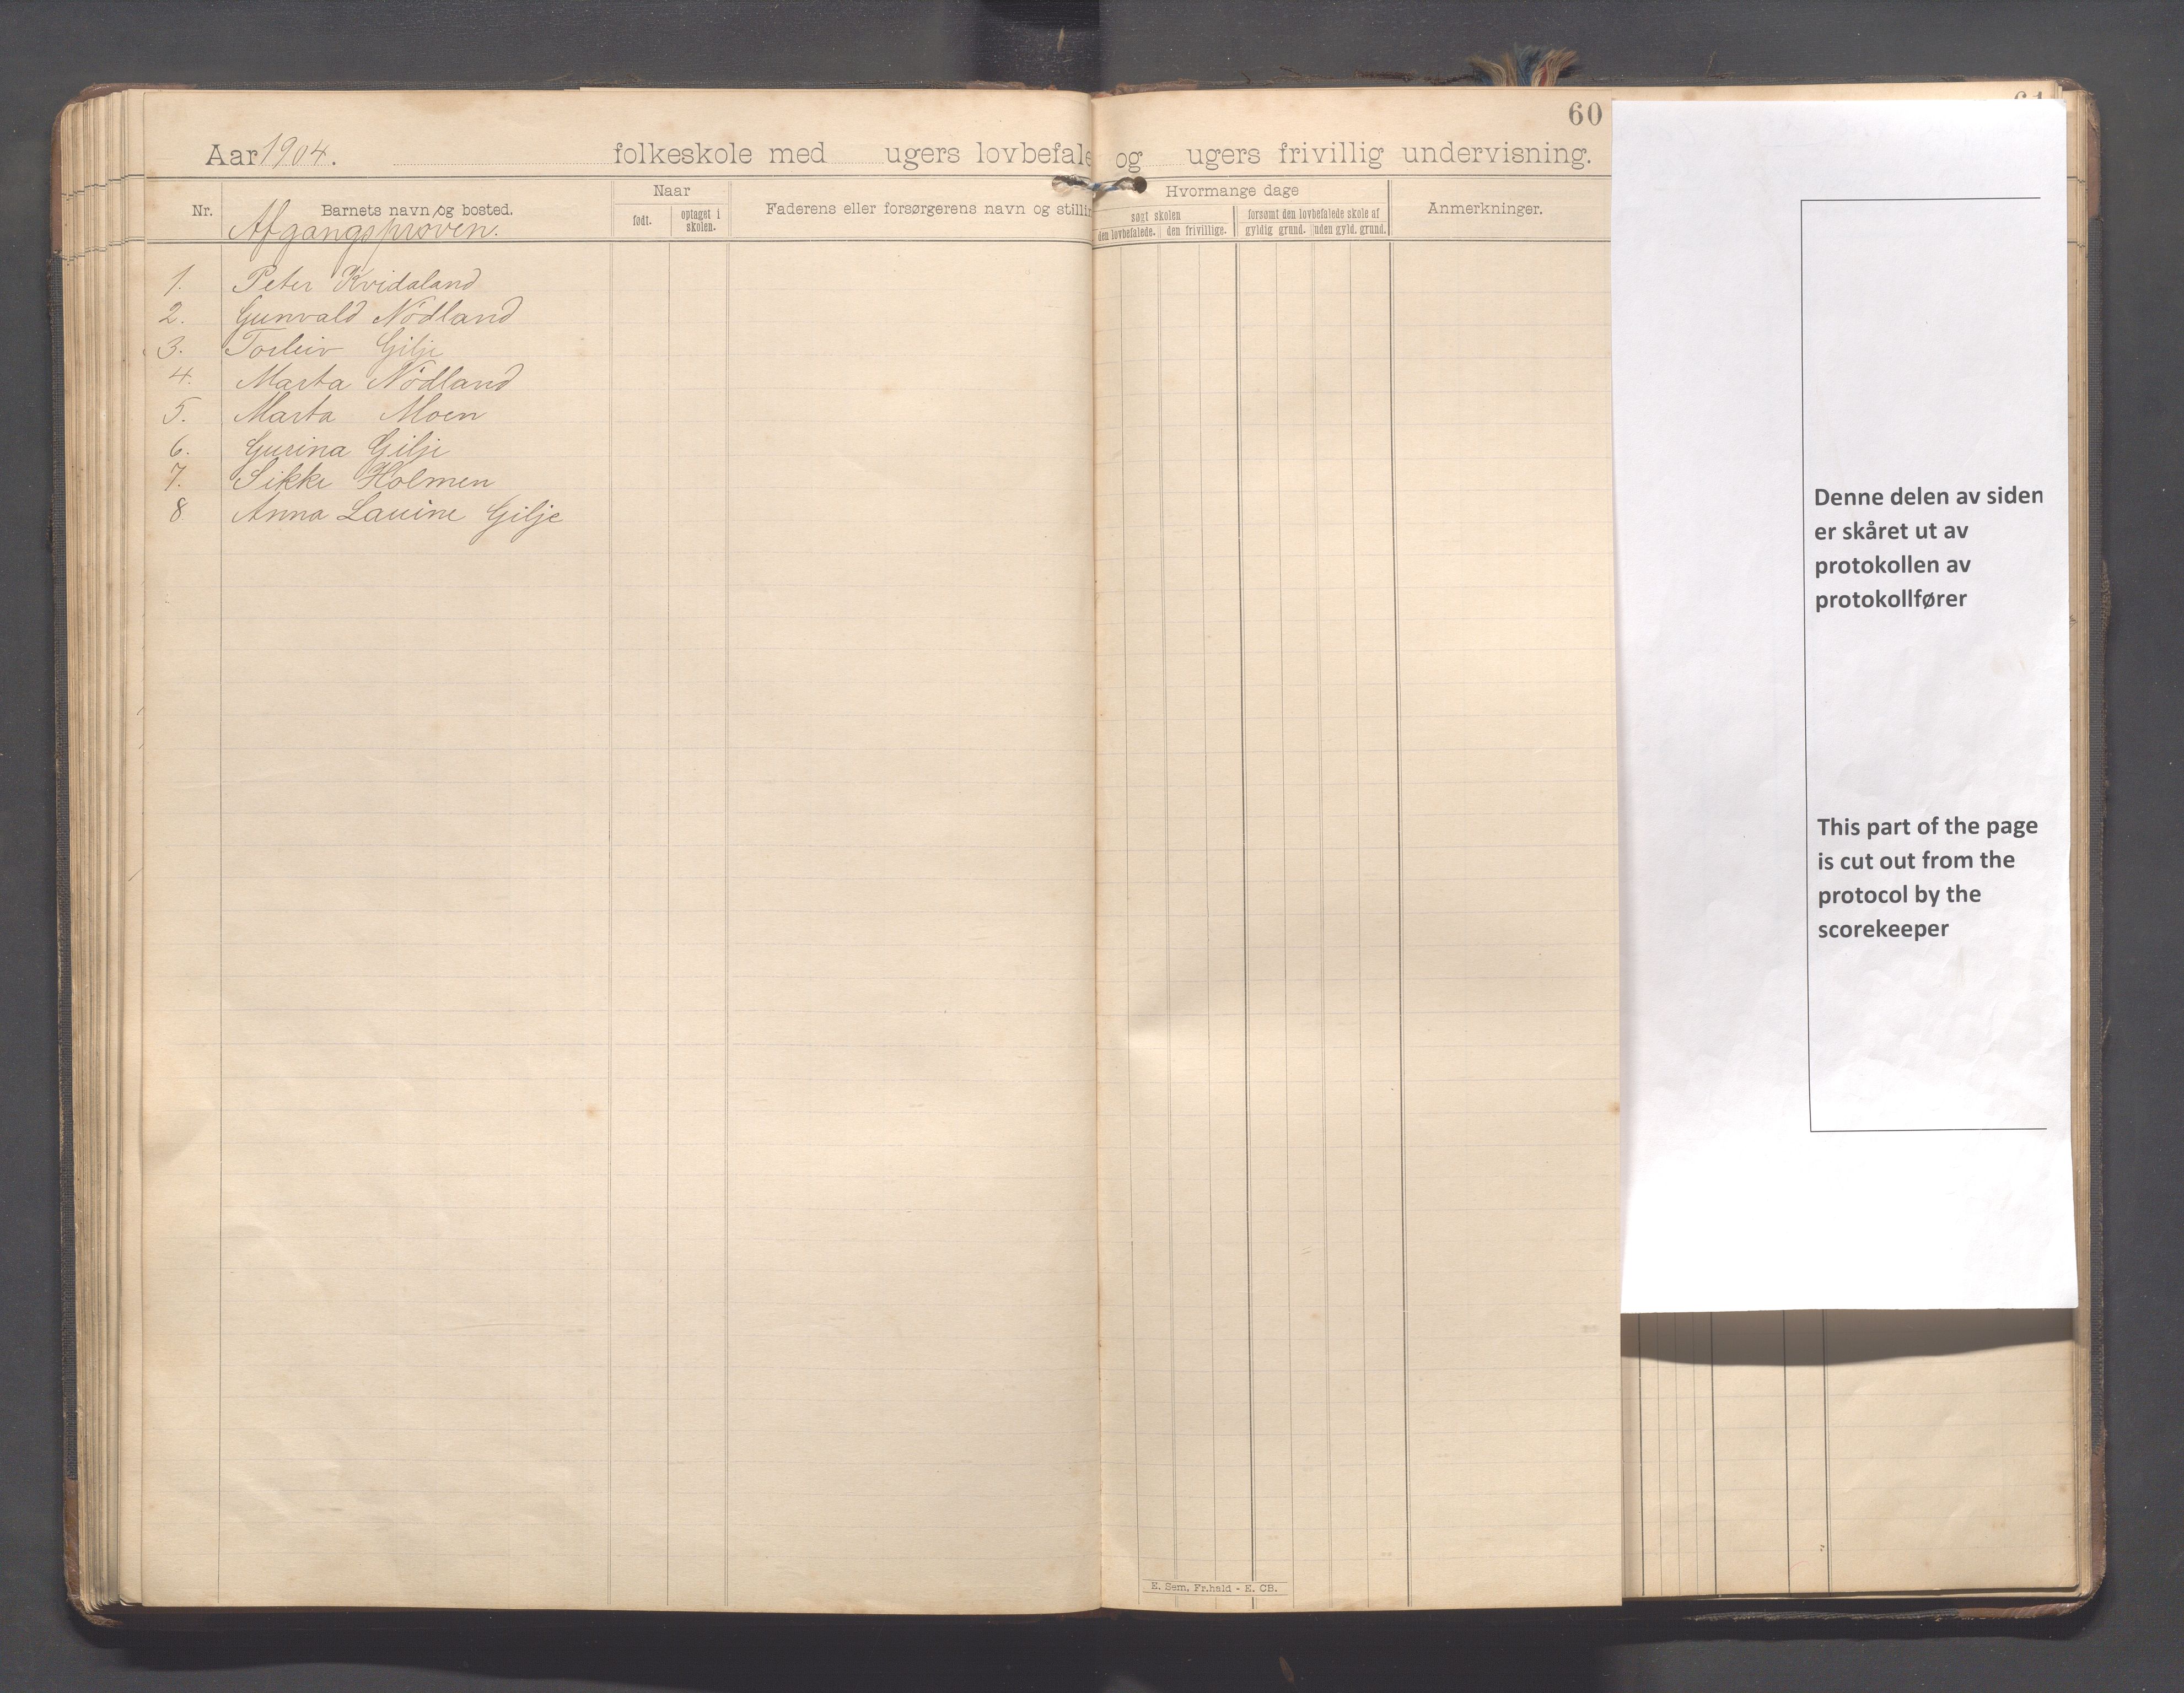 60
61
Aar 1904. folkeskole med ugers lovbefale og ugers frivillig undervisning.
Nr. Barnets navn og bosted. Naar født. optaget i skolen. Faderens eller forsørgerens navn og stillin Hvormange dage søgt skolen den lovbefalede. den frivillige. forsømt den lovbefalede skole af gyldig grund. uden gyld. grund. Anmerkninger.
Afgangsprøven.
1. Peter Kvidaland
2. Gunvald Nödland
3. Torleiv Gilje
4. Marta Nödland
5. Marta Moen
6. Gurina Gilje
7. Sikke Holmen
8 Anna Lauine Gilje
E. Sem, Fr.hald - E. CB.
Denne delen av siden
er skåret ut av
protokollen av
protokollfører
This part of the page
is cut out from the
protocol by the
scorekeeper